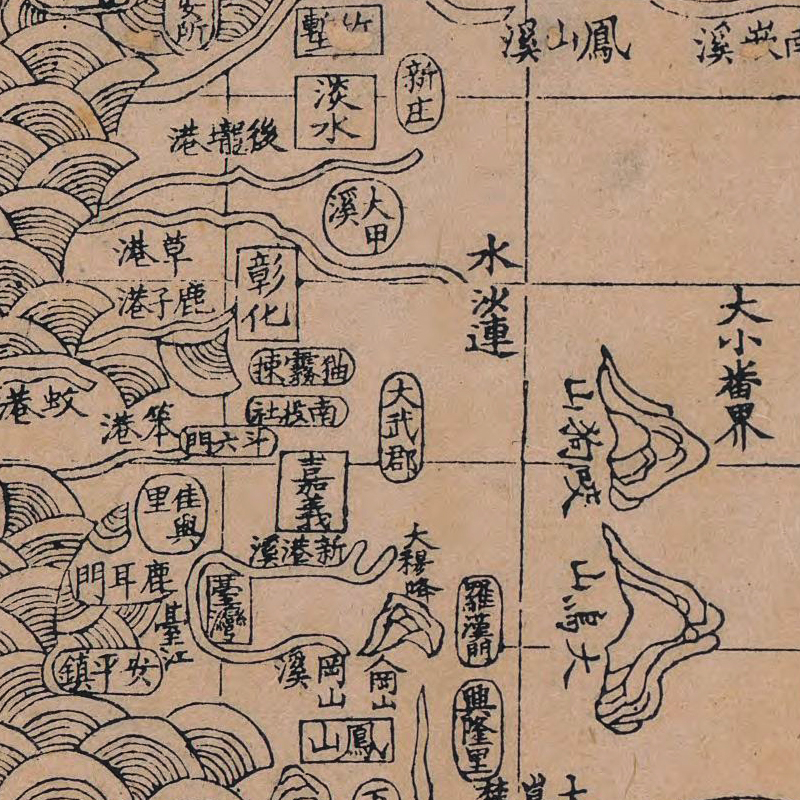 竹塹
淡水
新庄
鳳山溪
後壠港
大甲溪
草港
彰化
水沙連
鹿子港
大小番界
猫霧捒
南投社
大武郡
蚊港
笨港
斗六門
嘉義
佳興里
新港溪
鹿耳門
臺灣縣
臺江
羅漢門
安平鎮
岡山溪
岡山
鳳山
興隆里